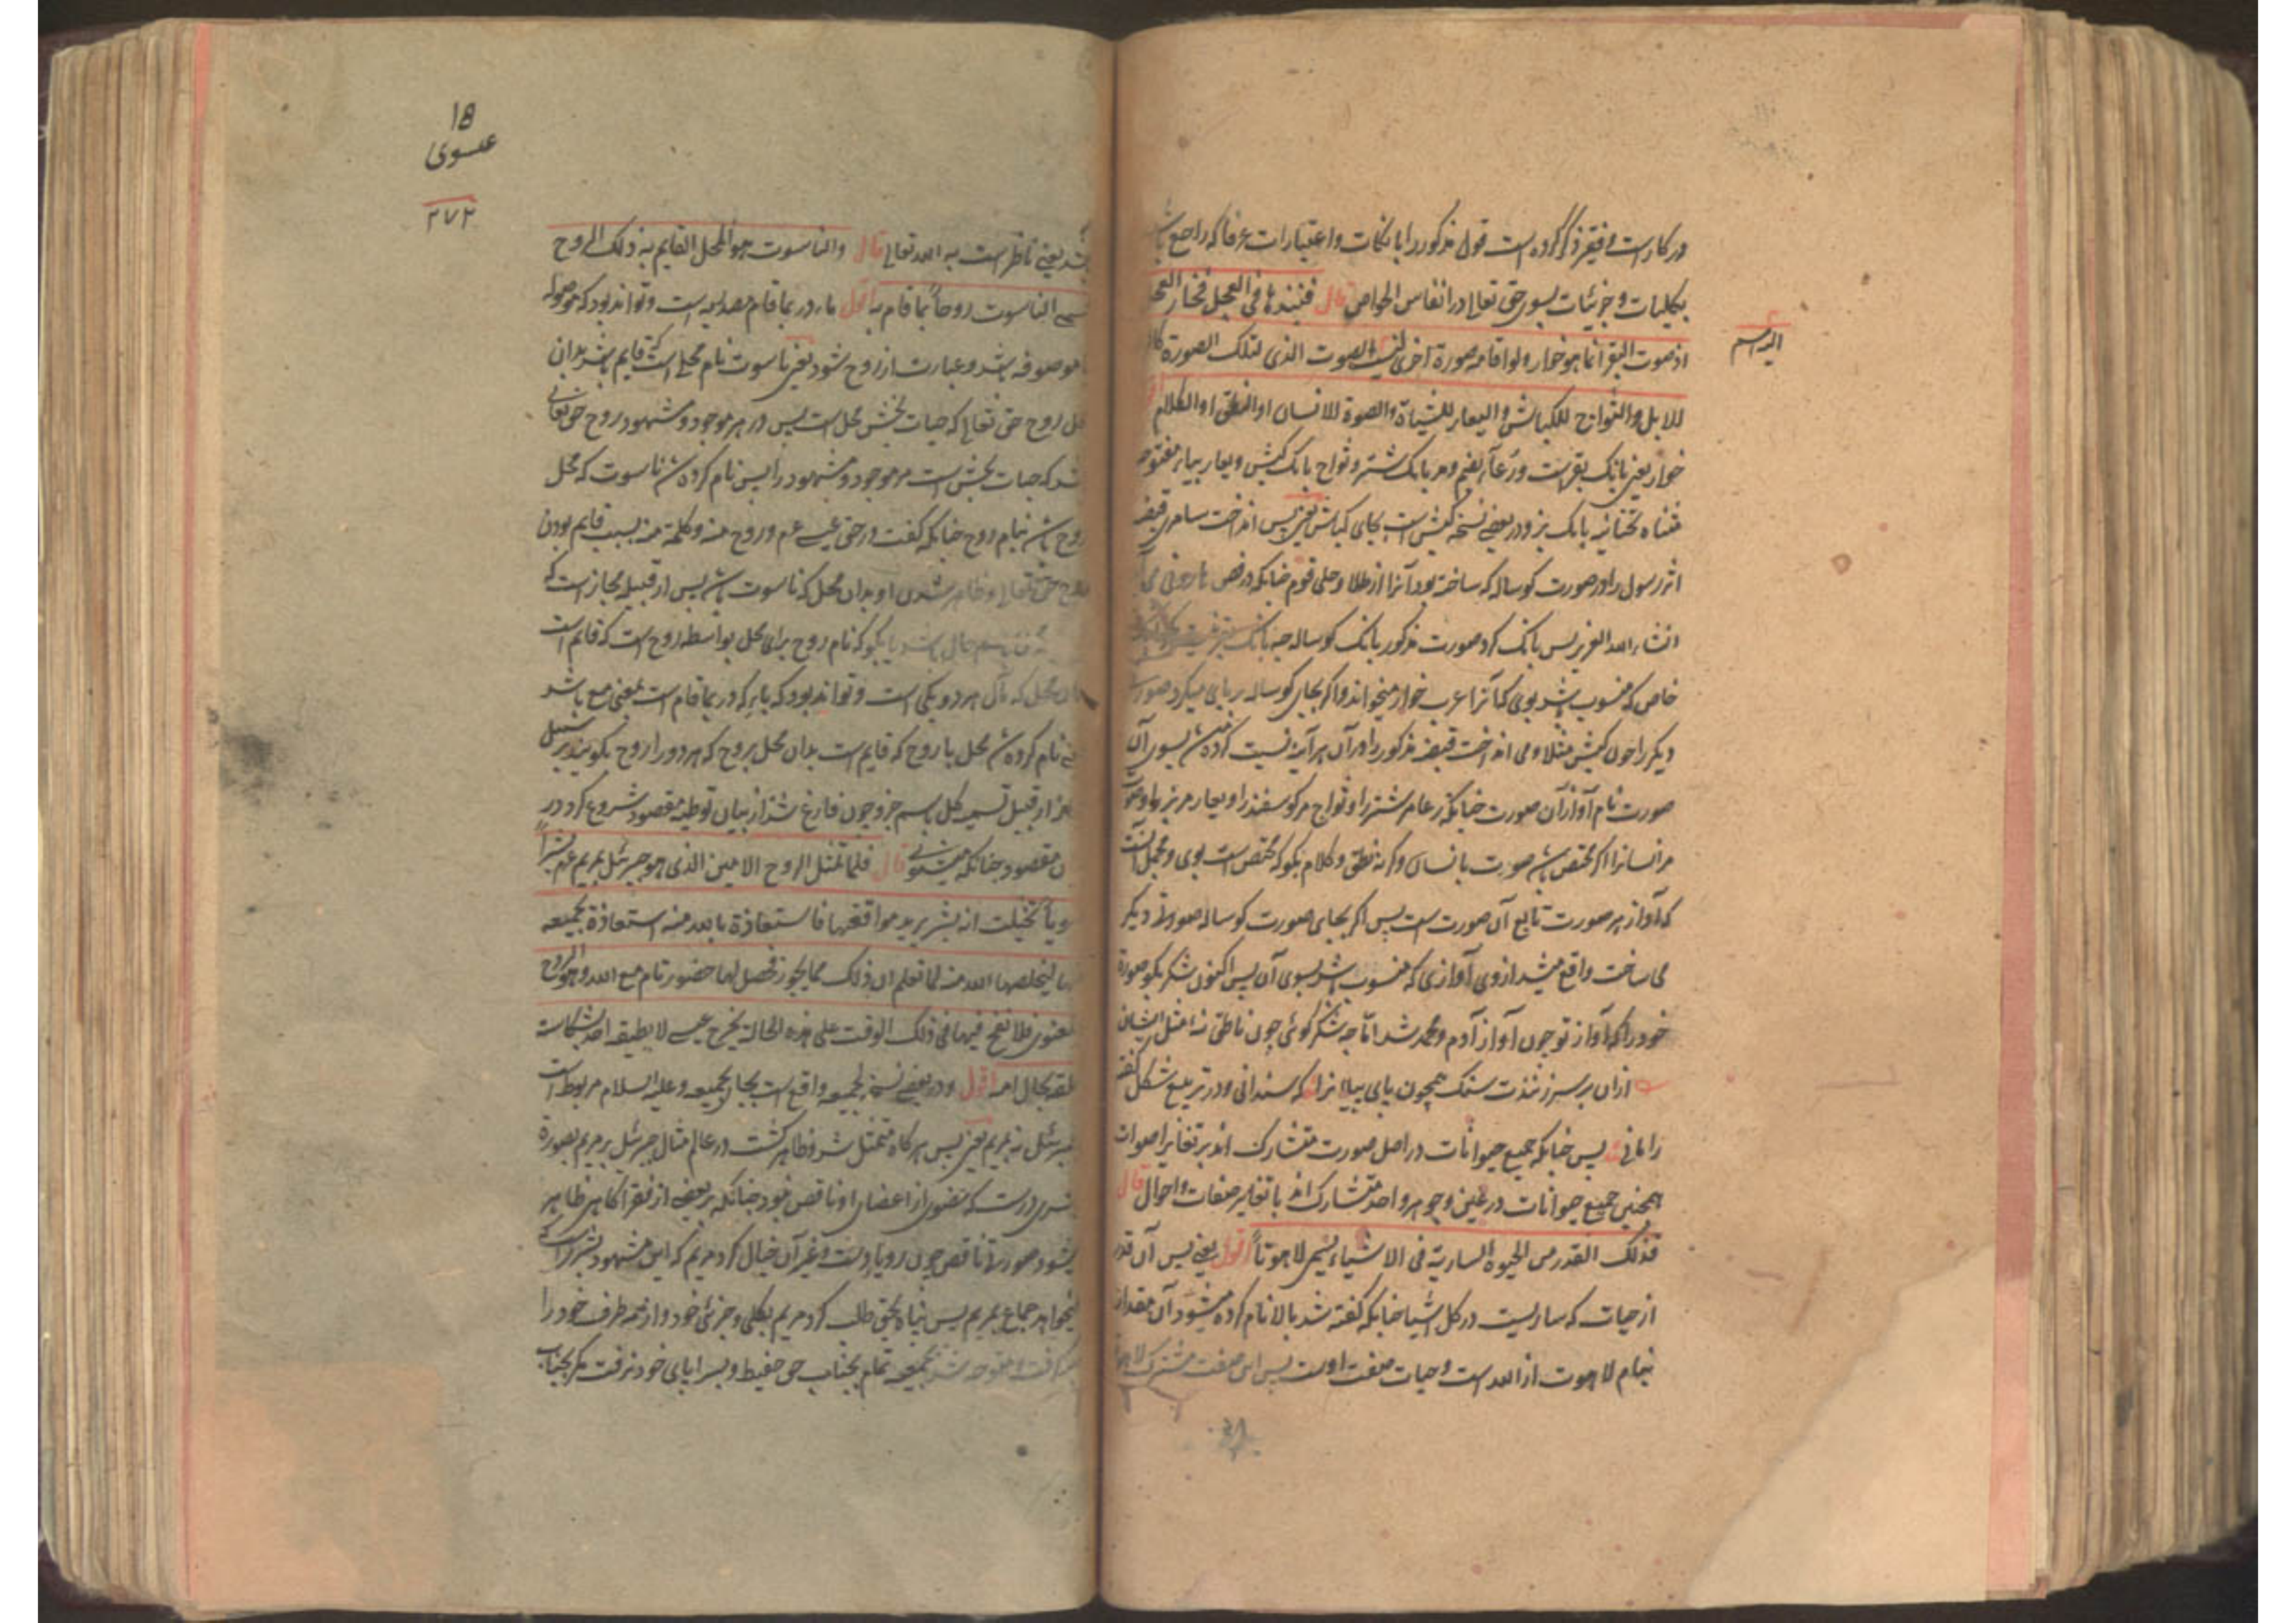 در کار است و فقیر ذکر کرده است قول مذکور را با نکات و اعتبارات عرفا که راجع باشد
بکلیات و جزئیات بسوی حق تعالی در انفاس الخواص قال فنبذها فی العجل فخار العجل
اذ صوت البقر انما هو خوار ولو اقامه صورة اخری لنسب الیه الصوت الذی لتلک الصورة کالرغاء
الیه اسم
للابل والثواج للکباش والیعار للشیاة والصوة للانسان او النطق او الکلام
خوار یعنی بانک بقر است و رغا بضم و مد بانک شتر و ثواج بانک کبش و یعار بیاء مفتوحه
مثناه تحتانیه بانک بز و در بعضی نسخه کبش است بجای کباش یعنی پس انداخت سامری قبضه
اثر رسول را در صورت کوساله که ساخته بود آنرا از طلا و حلی قوم چنانکه در فص هارونی می آید
انشاء الله العزیز پس بانک کرد صورت مذکور بانک کوساله چه بانک بقر نیست
خاص که منسوب باشد بوی که آنرا عرب خوار میخوانند و اگر بجای کوساله بر پای میکرد صورت
دیگر را چون کبش مثلا و می انداخت قبضه مذکور را در آن هر آینه نسبت کرده شدی بسوی آن
صورت نام آواز آن صورت چنانکه رغا مر شتر را و ثواج مر کوسفند را و یعار مر بز را و صوت
مر انسانرا اگر مختص باشد صورت بانسان و گرنه نطق و کلام بگو که مختص است بوی و مجمل آنست
که آواز هر صورت تابع آن صورت است پس اگر بجای صورت کوساله صورتی دیگر
می ساخت واقع میشد از وی آوازی که منسوب باشد بسوی آن پس اکنون شکر بگو صورة
خود را که آواز تو چون آواز آدم و محمد شد اما چه شکر گوئی چون ناطق نه مثل ایشان
ازان بر سر زنندت سنک همچون پای پیلانرا که سندانی و در تربیع شکل کفته
رامانی پس چنانکه جمیع حیوانات در اصل صورت متشارک اند بر تغایر اصوات
همچنین جمیع حیوانات در عین و جوهر واحد متشارک اند با تغایر صفات و احوال قال
فذلک القدر من الحیوة الساریة فی الاشیاء یسمی لاهوتاً اقول یعنی پس آن قدر
از حیات که ساریست در کل اشیا چنانکه کفته شد بالا نام کرده میشود آن مقدار
بنام لاهوت از الله است و حیات صفت اوست پس این صفت مشترک
18
عیسوی
۲۷۲
باشد یعنی ناظر است به الله تعالی قال والناسوت هو المحل القایم به ذلک الروح
فسمی الناسوت روحاً بما قام به اقول باء در بما قام مصدریه است و تواند بود که موصوله
موصوفه باشد و عبارت از روح شود یعنی ناسوت نام محلی است که قایم باشد بدان
محل روح حق تعالی که حیات بخش محل است پس در هر موجود و مشهود روح حق تعالی
باشد که حیات بخش است مر موجود و مشهود را پس نام کرده شد ناسوت که محل
روح باشد بنام روح چنانکه کفت در حق عیسی عم و روح منه و کلمة منه بسبب قایم بودن
روح حق تعالی و ظاهر شدن او بدان محل که ناسوت باشد پس از قبیله مجاز است که
باسم حال باشد یا بگو که نام روح برای محل بواسطه روح است که قایم است
بدان محل که مآل هر دو یکی است و تواند بود که باء که در بما قام است بمعنی مع باشد
یعنی نام کرده شد محل با روح که قایم است بدان محل بروح که هر دو را روح بگویند بر سبیل
مجاز از قبیل تسمیه کل باسم جزو چون فارغ شد از بیان توطیه مقصود شروع کرد در
آن مقصود چنانکه میشنوی قال فلما تمثل الروح الامین الذی هو جبرئیل لمریم عم بشراً
سویاً تخیلت انه بشر یرید مواقعتها فاستعاذة بالله منه استعاذة بجمعیة
منها لیخلصها الله منه لما تعلم ان ذلک مما یجوز فحصل لها حضور تام مع الله وهو الروح
المعنوی فلو نفخ فیها فی ذلک الوقت علی هذه الحالة یخرج عیسی لا یطیقه احد لشکاسة
خلقه بحال امه اقول و در بعضی نسخه بجمعیة واقع است بجای لجمیعه و علیه السلام مربوط است
جبرئیل نه بمریم یعنی پس هر کاه متمثل شد و ظاهر کشت در عالم مثال جبرئیل بر مریم بصورة
بشری درست که عضوی از اعضای او ناقص نبود چنانکه بر بعضی از فقرا کاهی ظاهر
میشود صورة ناقص چون رو یا دست و غیر آن خیال کرد مریم که این مشهود بشر است که
میخواهد جماع بمریم پس پناه بحق طلب کرد مریم بکلی و جزئی خود و از همه طرف خود را
گرفت و متوجه شد بجمیعه تمام بجناب حق حفیظ و بسراپای خود نرفت مگر بجناب